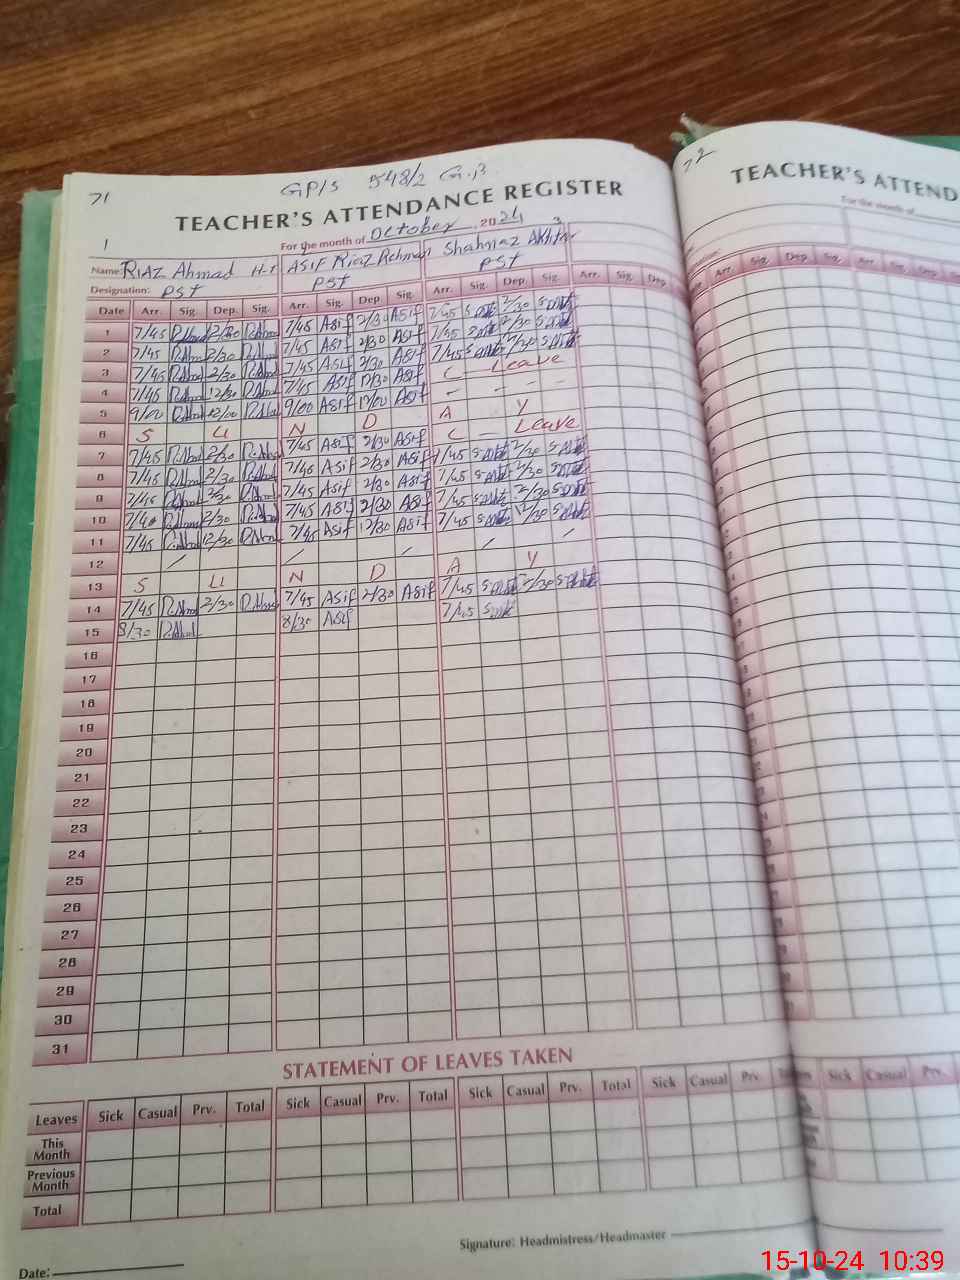 71
GP/S 548/2 G.B
TEACHER'S ATTENDANCE REGISTER
For the month of October 2024
1 3
Name: Riaz Ahmad H-T Asif Riaz Rehman Shahnaz Akhtar
Designation: PST PST PST
Date Arr. Sig. Dep. Sig. Arr. Sig. Dep. Sig. Arr. Sig. Dep. Sig. Arr. Sig. Dep.
1 7/45 2/30 7/45 Asif 2/30 Asif 7/45 2/30
2 7/45 2/30 7/45 Asif 2/30 Asif 7/45 2/30
3 7/45 2/30 7/45 Asif 2/30 Asif 7/45 2/30
4 7/45 12/30 7/45 Asif 12/30 Asif C Leave
5 9/00 12/00 9/00 Asif 12/00 Asif - - - -
6 S U N D A Y
7 7/45 2/30 7/45 Asif 2/30 Asif C - Leave
8 7/45 2/30 7/45 Asif 2/30 Asif 7/45 2/30
9 7/45 2/30 7/45 Asif 2/30 Asif 7/45 2/30
10 7/45 2/30 7/45 Asif 2/30 Asif 7/45 2/30
11 7/45 12/30 7/45 Asif 12/30 Asif 7/45 12/30
12 / / / / /
13 S U N D A Y
14 7/45 2/30 7/45 Asif 2/30 Asif 7/45 2/30
15 8/30 8/30 Asif 7/45
16
17
18
19
20
21
22
23
24
25
26
27
28
29
30
31
STATEMENT OF LEAVES TAKEN
Leaves Sick Casual Prv. Total Sick Casual Prv. Total Sick Casual Prv. Total Sick Casual Prv.
This Month
Previous Month
Total
Signature: Headmistress/Headmaster
Date:
72
TEACHER'S ATTEND
For the month of
Arr. Sig. Dep. Sig. Arr. Sig. Dep.
Sick Casual Prv.
15-10-24 10:39